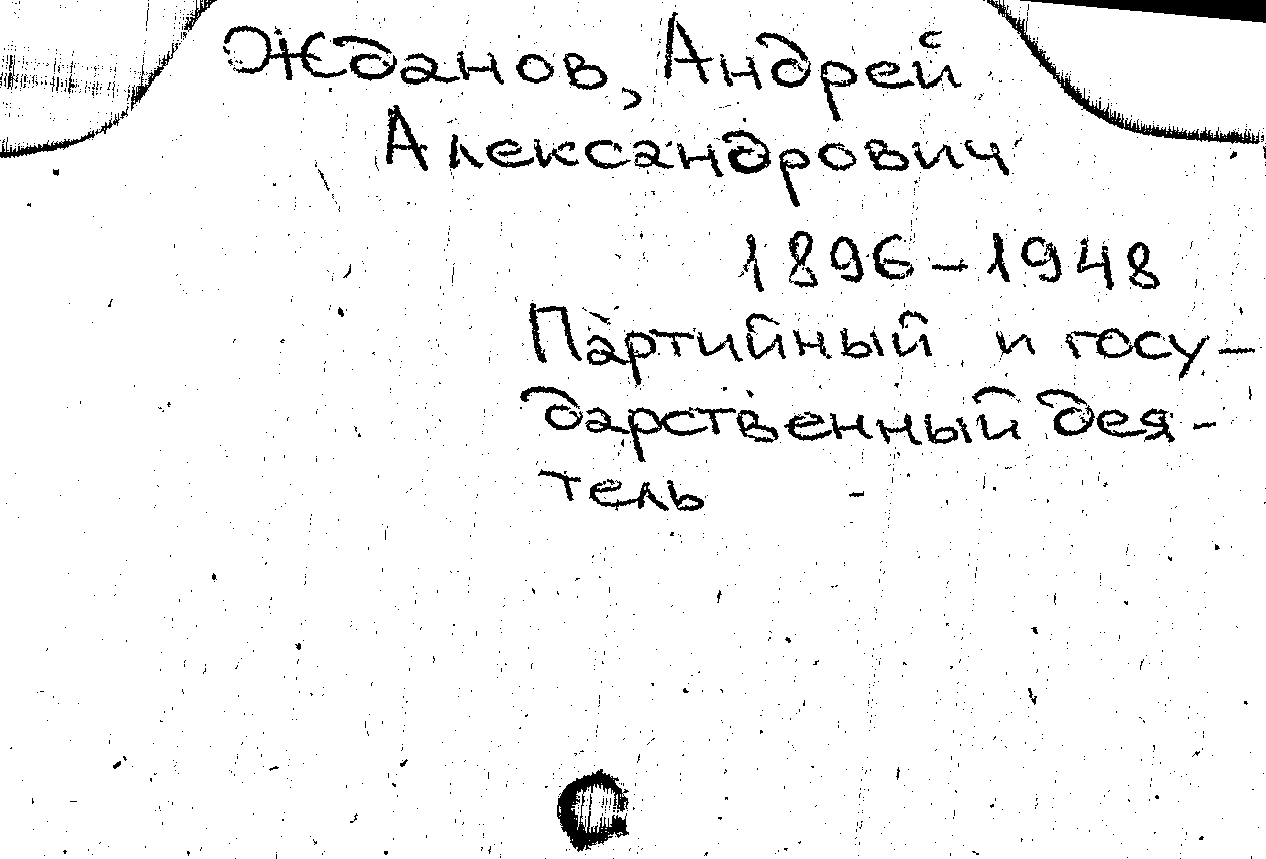 Жданов, Андрей
Александрович
1896-1948
Партийный и госу-
дарственный дея-
тель